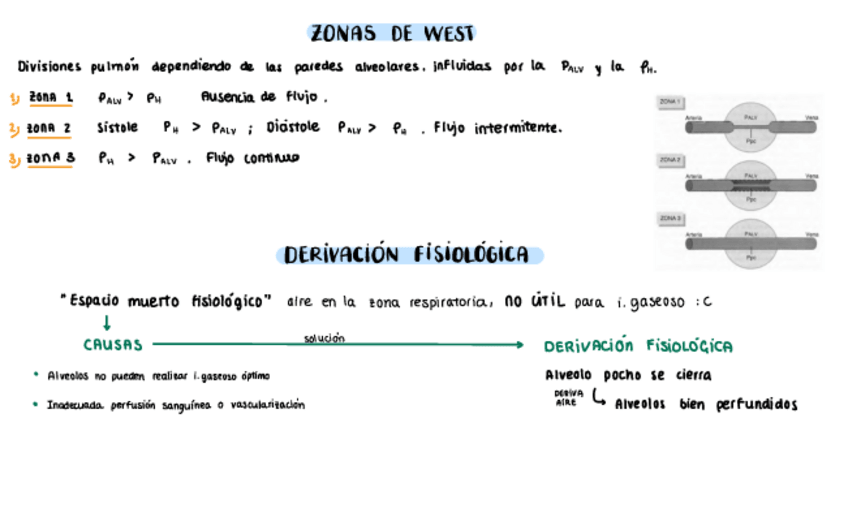 ZONAS DE WEST
Divisiones pulmón dependiendo de las paredes alveolares, influidas por la PALV y la PH.
1) ZONA 1 PALV > PH Ausencia de flujo.
2) ZONA 2 Sístole PH > PALV ; Diástole PALV > PH . Flujo intermitente.
3) ZONA 3 PH > PALV . Flujo continuo
ZONA 1
Arteria PALV Vena
Ppc
ZONA 2
Arteria PALV Vena
Ppc
ZONA 3
Arteria PALV Vena
Ppc
DERIVACIÓN FISIOLÓGICA
"Espacio muerto fisiológico" aire en la zona respiratoria, no ÚTIL para i. gaseoso :C
CAUSAS solución DERIVACIÓN FISIOLÓGICA
• Alveolos no pueden realizar i. gaseoso óptimo
Alveolo pocho se cierra
• Inadecuada perfusión sanguínea o vascularización
DERIVA AIRE Alveolos bien perfundidos